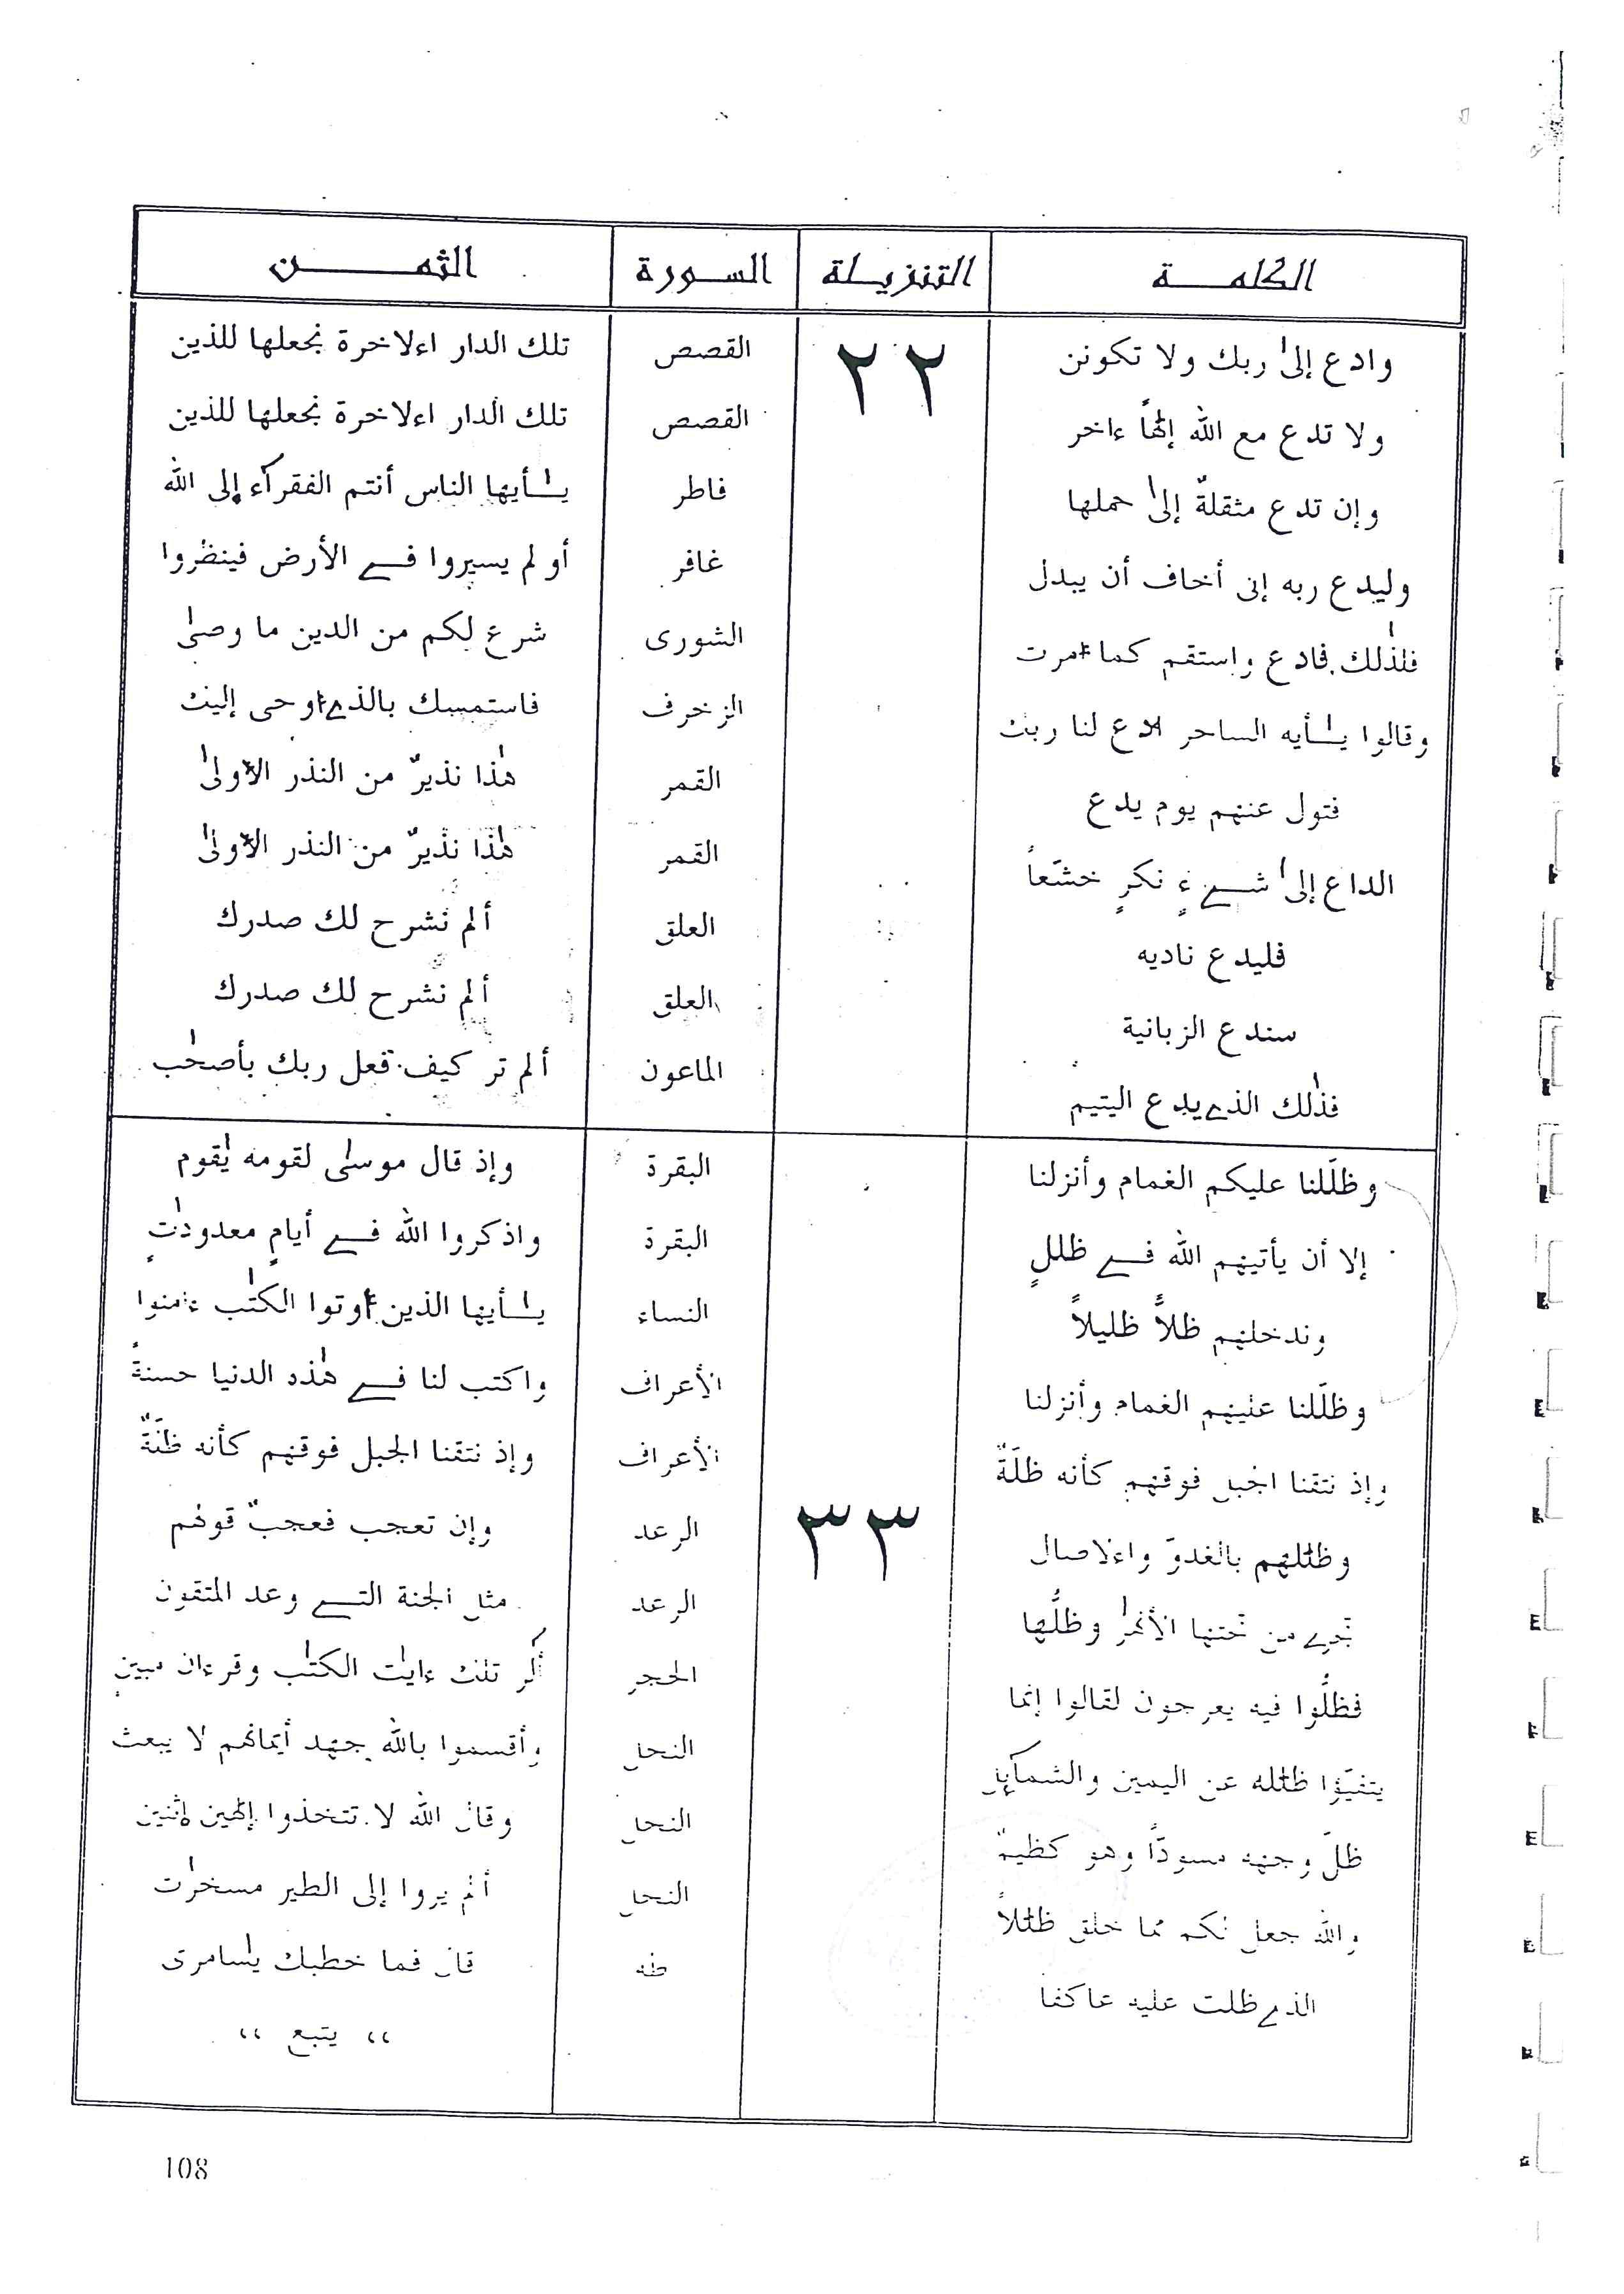 الكلمة التنزيلة السورة الثمن
وادع إلىٰ ربك ولا تكونن ٢٢ القصص تلك الدار اءلاخرة نجعلها للذين
ولا تدع مع الله إلٰهاً ءاخر القصص تلك الدار اءلاخرة نجعلها للذين
وإن تدع مثقلةٌ إلىٰ حملها فاطر يـٰأيها الناس أنتم الفقرآء إلى الله
وليدع ربه إنى أخاف أن يبدل غافر أو لم يسيروا فے الأرض فينظروا
فلذٰلك فادع واستقم كما أمرت الشورى شرع لكم من الدين ما وصىٰ
وقالوا يـٰأيه الساحر ادع لنا ربك الزخرف فاستمسك بالذے أوحى إليك
فتول عنهم يوم يدع القمر هٰذا نذيرٌ من النذر الأولىٰ
الداع إلىٰ شےءٍ نكرٍ خشّعاً القمر هٰذا نذيرٌ من النذر الأولىٰ
فليدع ناديه العلق ألم نشرح لك صدرك
سندع الزبانية العلق ألم نشرح لك صدرك
فذٰلك الذے يدع اليتيم الماعون ألم تر كيف فعل ربك بأصحٰب
وظلّلنا عليكم الغمام وأنزلنا البقرة وإذ قال موسىٰ لقومه يٰقوم
إلا أن يأتيهم الله فے ظللٍ البقرة واذكروا الله فے أيامٍ معدودٰتٍ
وندخلهم ظلاًّ ظليلاً النساء يـٰأيها الذين أوتوا الكتٰب ءامنوا
وظلّلنا عليهم الغمام وأنزلنا الأعراف واكتب لنا فے هٰذه الدنيا حسنةً
وإذ نتقنا الجبل فوقهم كأنه ظلّةٌ الأعراف وإذ نتقنا الجبل فوقهم كأنه ظلّةٌ
وظلٰلهم بالغدوّ واءلاصال ٣٣ الرعد وإن تعجب فعجبٌ قولهم
تجرے من تحتها الأنهٰر وظلُّها الرعد مثل الجنة التے وعد المتقون
فظلُّوا فيه يعرجون لقالوا إنما الحجر ألٓر تلك ءايٰت الكتٰب وقرءان مبين
يتفيّؤا ظلٰله عن اليمين والشمآئل النحل وأقسموا بالله جهد أيمانهم لا يبعث
ظلّ وجهه مسودّاً وهو كظيمٌ النحل وقال الله لا تتخذوا إلٰهين اثنين
والله جعل لكم مما خلق ظلٰلاً النحل ألم يروا إلى الطير مسخرٰت
الذے ظلت عليه عاكفا طه قال فما خطبك يٰسامرى
،، يتبع ،،
108